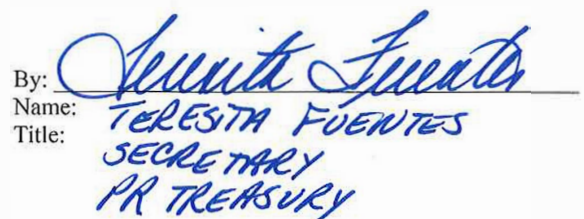 By: Teresita Fuentes
Name: TERESITA FUENTES
Title: SECRETARY
PR TREASURY